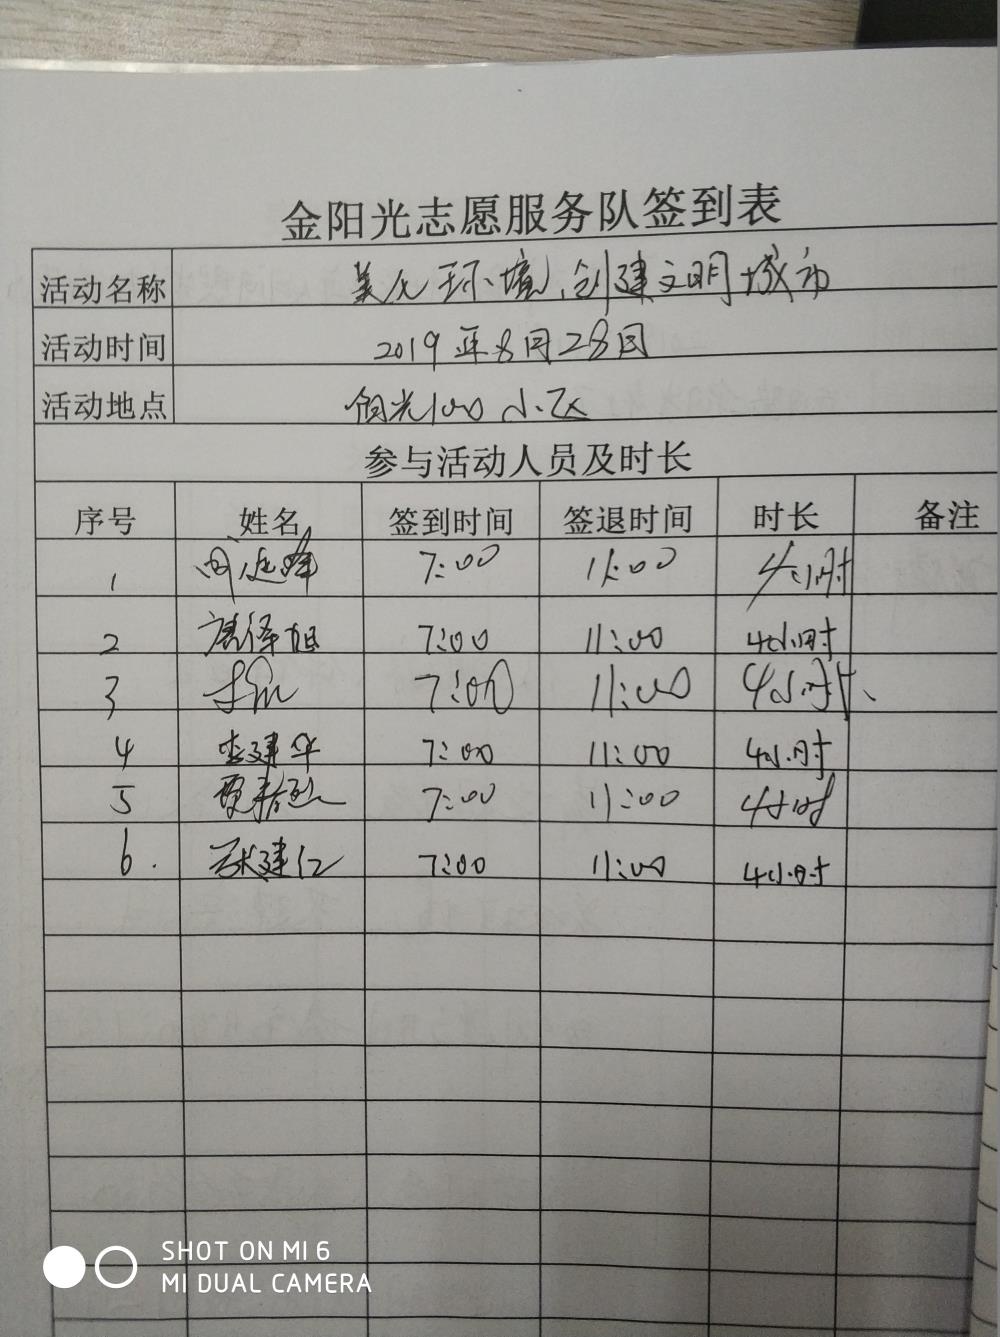 金阳光志愿服务队签到表
活动名称 美化环境,创建文明城市
活动时间 2019年8月28日
活动地点 阳光100小区
参与活动人员及时长
序号 姓名 签到时间 签退时间 时长 备注
1 7:00 11:00 4小时
2 7:00 11:00 4小时
3 7:00 11:00 4小时
4 李建华 7:00 11:00 4小时
5 7:00 11:00 4小时
6 建仁 7:00 11:00 4小时
SHOT ON MI 6
MI DUAL CAMERA